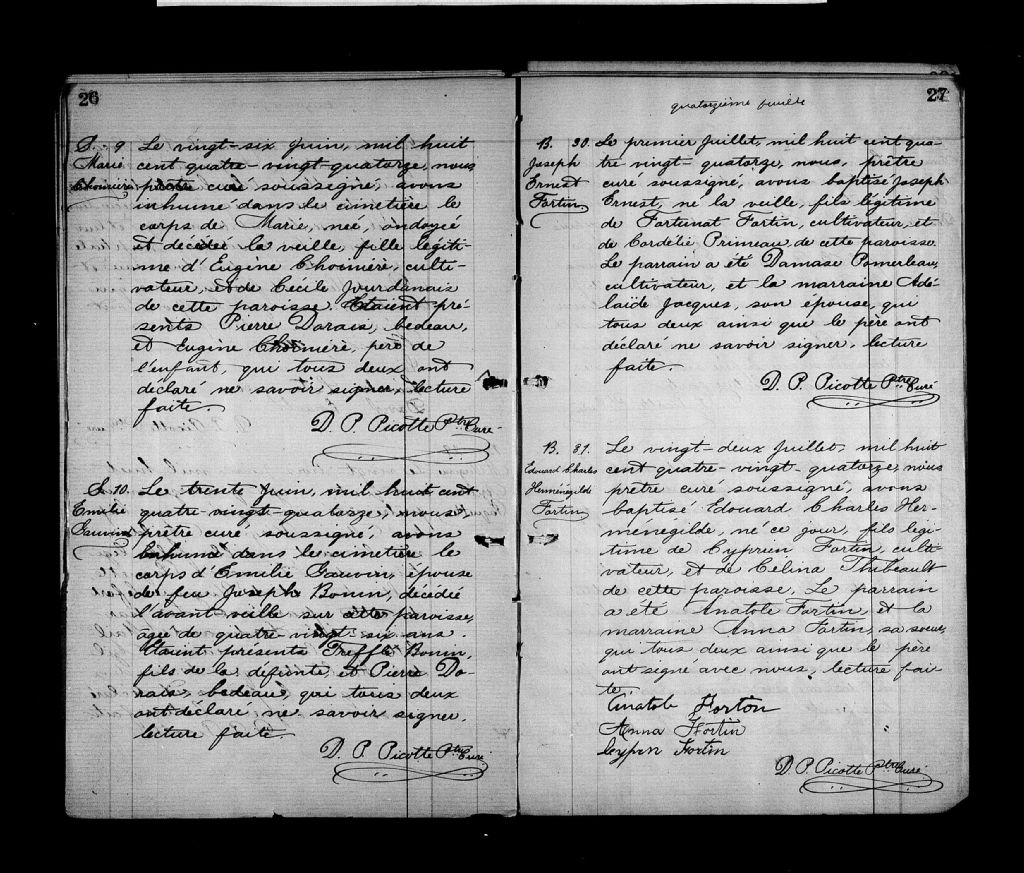 26
S. 9
Marie
Choinière
Le vingt-six Juin, mil huit
cent quatre-vingt-quatorze, nous,
prêtre curé soussigné, avons
inhumé dans le cimetière le
corps de Marie, née, ondoyée
et décédée la veille, fille légiti-
me d'Eugène Choinière, culti-
vateur, et de Cecile Jourdanais
de cette paroisse. Etaient pré-
sents Pierre Darais, bedeau,
et Eugène Choinière, père de
l'enfant, qui tous deux ont
déclaré ne savoir signer, lecture
faite.
D. P. Picotte Ptre Curé
S. 10.
Emilie
Gauvin
Le trente Juin, mil huit cent
quatre-vingt-quatorze, nous
prêtre curé, soussigné, avons
inhumé dans le cimetière le
corps d'Emilie Gauvin, épouse
de feu Joseph Bonin, décédée
l'avant-veille sur cette paroisse,
agée de quatre-vingt-six ans.
Etaient présents Treffle Bonin,
fils de la défunte, et Pierre Da-
rais, bedeau, qui tous deux
ont déclaré ne savoir signer,
lecture faite.
D. P. Picotte Ptre Curé
27
quatorzième feuille
B. 30.
Joseph
Ernest
Fortin
Le premier Juillet, mil huit cent qua-
tre vingt-quatorze, nous, prêtre
curé soussigné, avons baptisé Joseph
Ernest, né la veille, fils légitime
de Fortunat Fortin, cultivateur, et
de Cordelie Primeau, de cette paroisse.
Le parrain a été Damase Pomerleau,
cultivateur, et la marraine Adé-
laïde Jacques, son épouse, qui
tous deux ainsi que le père ont
déclaré ne savoir signer, lecture
faite.
D. P. Picotte Ptre Curé
B. 31.
Edouard Charles
Herménégilde
Fortin
Le vingt-deux Juillet, mil huit
cent quatre-vingt-quatorze, nous
prêtre curé soussigné, avons
baptisé Edouard Charles Her-
ménégilde, né ce jour, fils légi-
time de Cyprien Fortin, culti-
vateur, et de Célina Thibeault
de cette paroisse. Le parrain
a été Anatole Fortin, et la
marraine Anna Fortin, sa soeur,
qui tous deux ainsi que le père
ont signé avec nous, lecture fai-
te.
Anatole Fortin
Anna Fortin
Cyprien Fortin
D. P. Picotte Ptre Curé